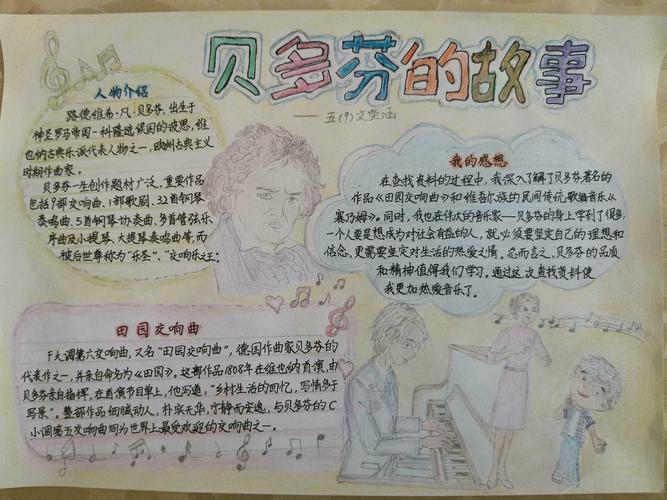 贝多芬的故事
——五(9)文奕涵
人物介绍
路德维希·凡·贝多芬,出生于
神圣罗马帝国-科隆选候国的波恩,维
也纳古典乐派代表人物之一,欧洲古典主义
时期作曲家。
贝多芬一生创作题材广泛,重要作品
包括9部交响曲、1部歌剧、32首钢琴
奏鸣曲、5首钢琴协奏曲、多首管弦乐
序曲及小提琴、大提琴奏鸣曲等,而
被后世尊称为“乐圣”、“交响乐之王”
我的感想
在查找资料的过程中,我深入了解了贝多芬著名的
作品《田园交响曲》和维吾尔族的民间传统歌舞音乐《
赛乃姆》。同时,我也在伟大的音乐家—贝多芬的身上学到了很多,
一个人要是想成为对社会有益的人,就必须要坚定自己的理想和
信念,更需要坚定对生活的热爱之情。总而言之,贝多芬的品质
和精神值得我们学习。通过这次查找资料使
我更加热爱音乐了。
田园交响曲
F大调第六交响曲,又名“田园交响曲”,德国作曲家贝多芬的
代表作之一,并亲自命名为《田园》。这部作品1808年在维也纳首演,由
贝多芬亲自指挥,在首演节目单上,他写道:“乡村生活的回忆,写情多于
写景”。整部作品细腻动人,朴实无华,宁静而安逸,与贝多芬的C
小调第五交响曲同为世界上最受欢迎的交响曲之一。